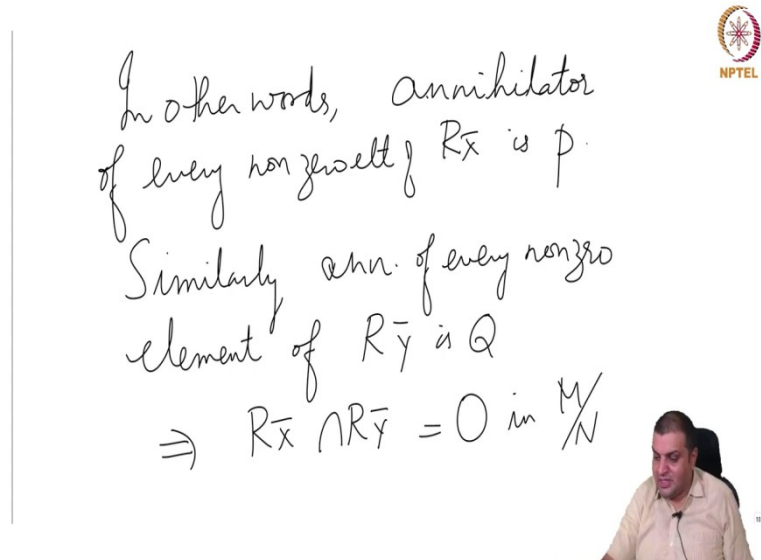 NPTEL
In other words, annihilator
of every nonzero elt of Rx̄ is p.
Similarly ann. of every nonzero
element of Rȳ is Q
⇒ Rx̄ ∩ Rȳ = 0 in M/N
11